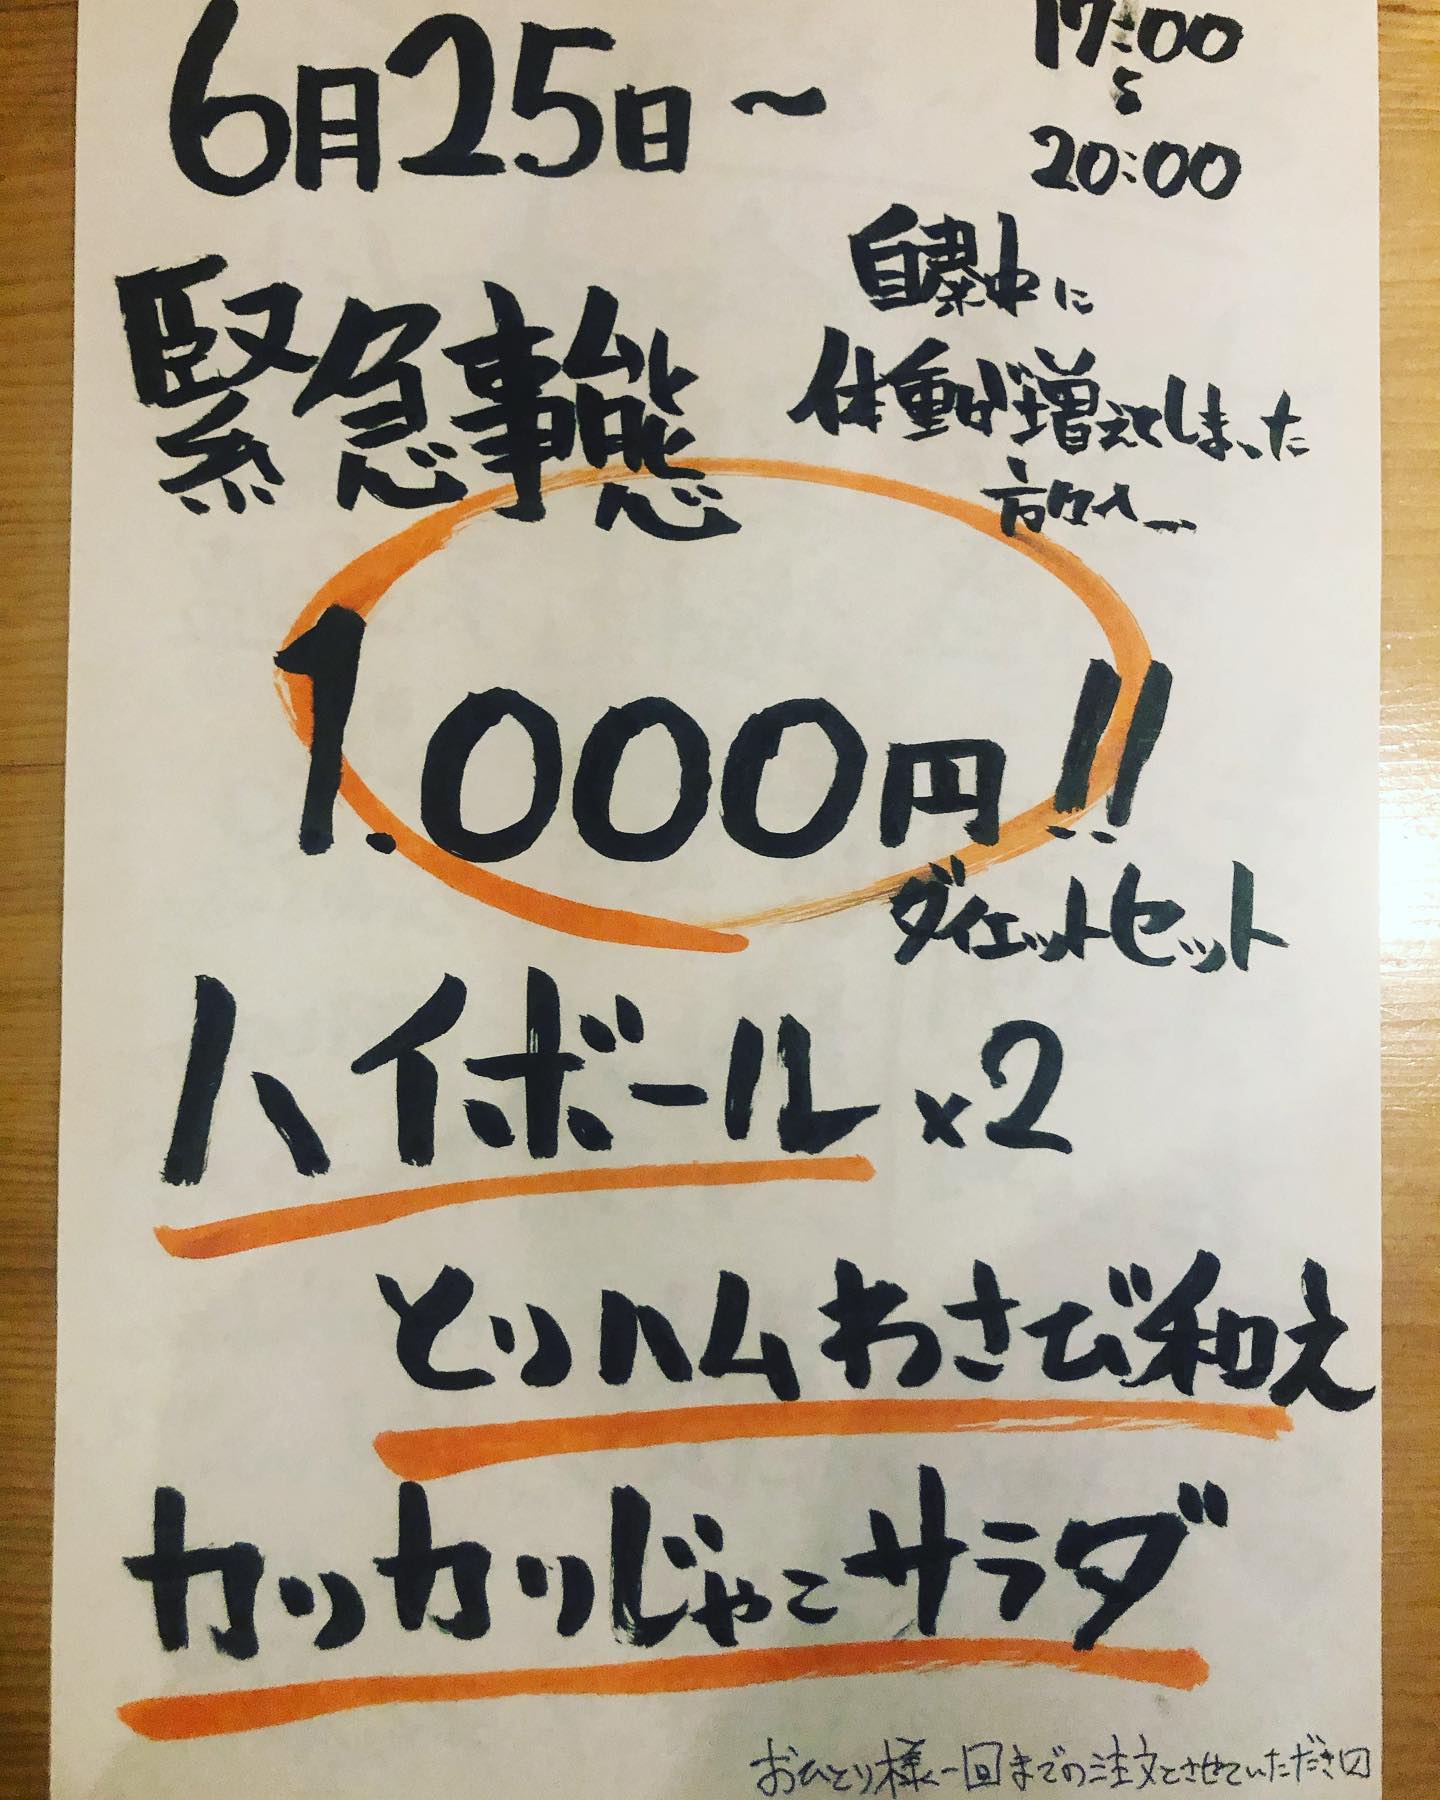 6月25日～
17:00
〜
20:00
緊急事態
自粛中に
体重が増えてしまった
方々へ…
1.000円!!
ダイエットセット
ハイボール×2
とりハムわさび和え
カリカリじゃこサラダ
おひとり様一回までの注文とさせていただき〼